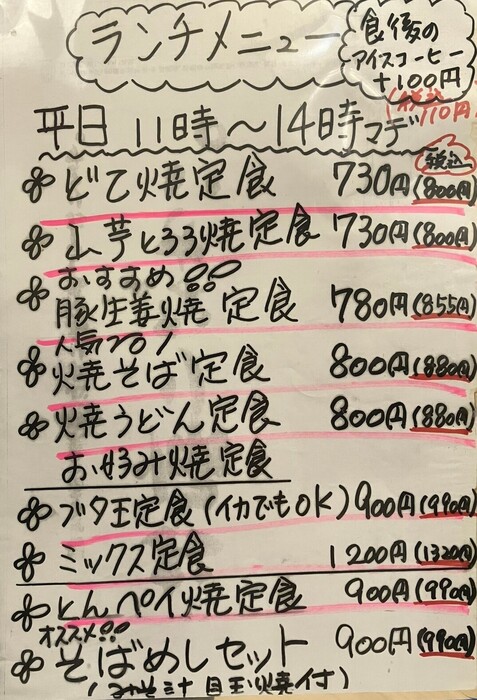 ランチメニュー
食後の
アイスコーヒー
+100円
(税込110円)
平日 11時〜14時マデ
税込
どて焼定食 730円(800円)
山芋とろろ焼定食 730円(800円)
おすすめ!!
豚生姜焼定食 780円(855円)
人気No1
焼そば定食 800円(880円)
焼うどん定食 800円(880円)
お好み焼定食
ブタ玉定食(イカでもOK) 900円(990円)
ミックス定食 1200円(1320円)
とんペイ焼定食 900円(990円)
オススメ!!
そばめしセット 900円(990円)
(みそ汁 目玉焼付)